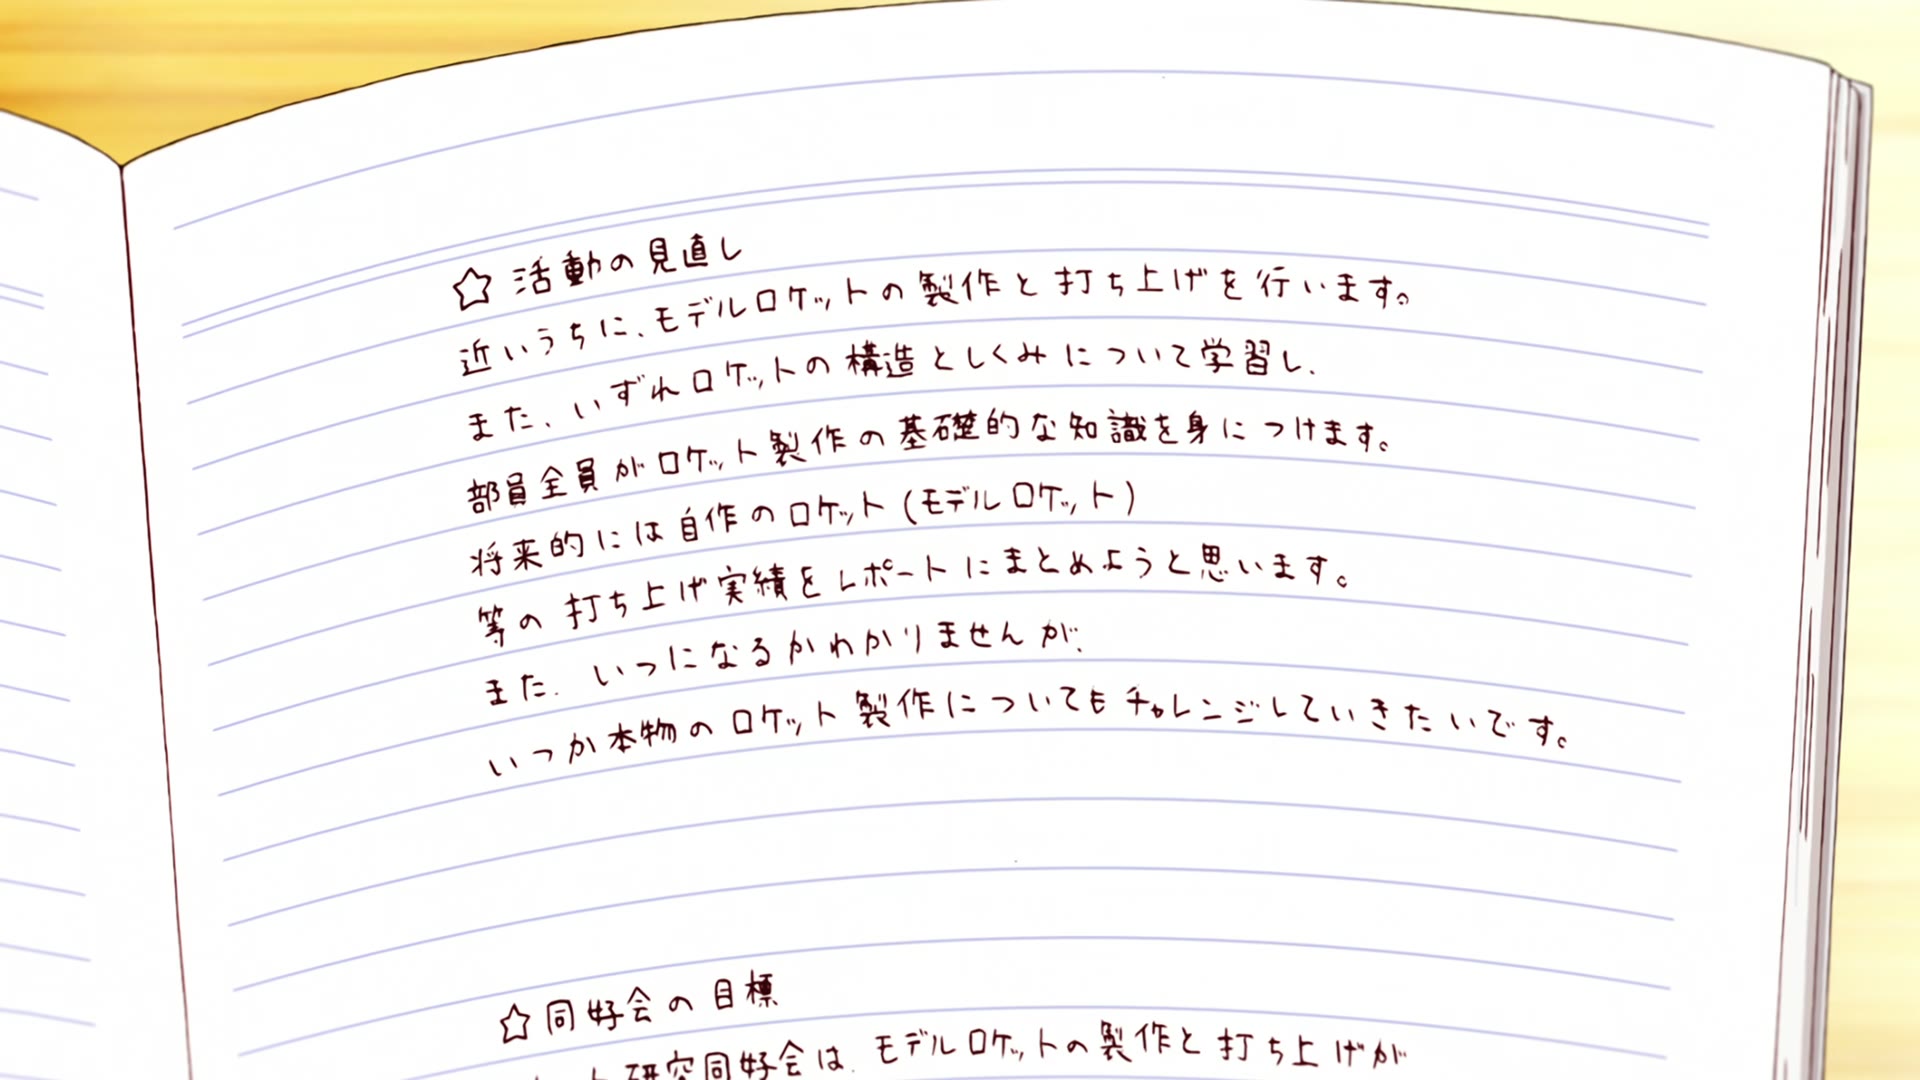 ☆活動の見直し
近いうちに、モデルロケットの製作と打ち上げを行います。
また、いずれロケットの構造としくみについて学習し、
部員全員がロケット製作の基礎的な知識を身につけます。
将来的には自作のロケット(モデルロケット)
等の打ち上げ実績をレポートにまとめようと思います。
また、いつになるかわかりませんが、
いつか本物のロケット製作についてもチャレンジしていきたいです。
☆同好会の目標
ト研究同好会は、モデルロケットの製作と打ち上げが